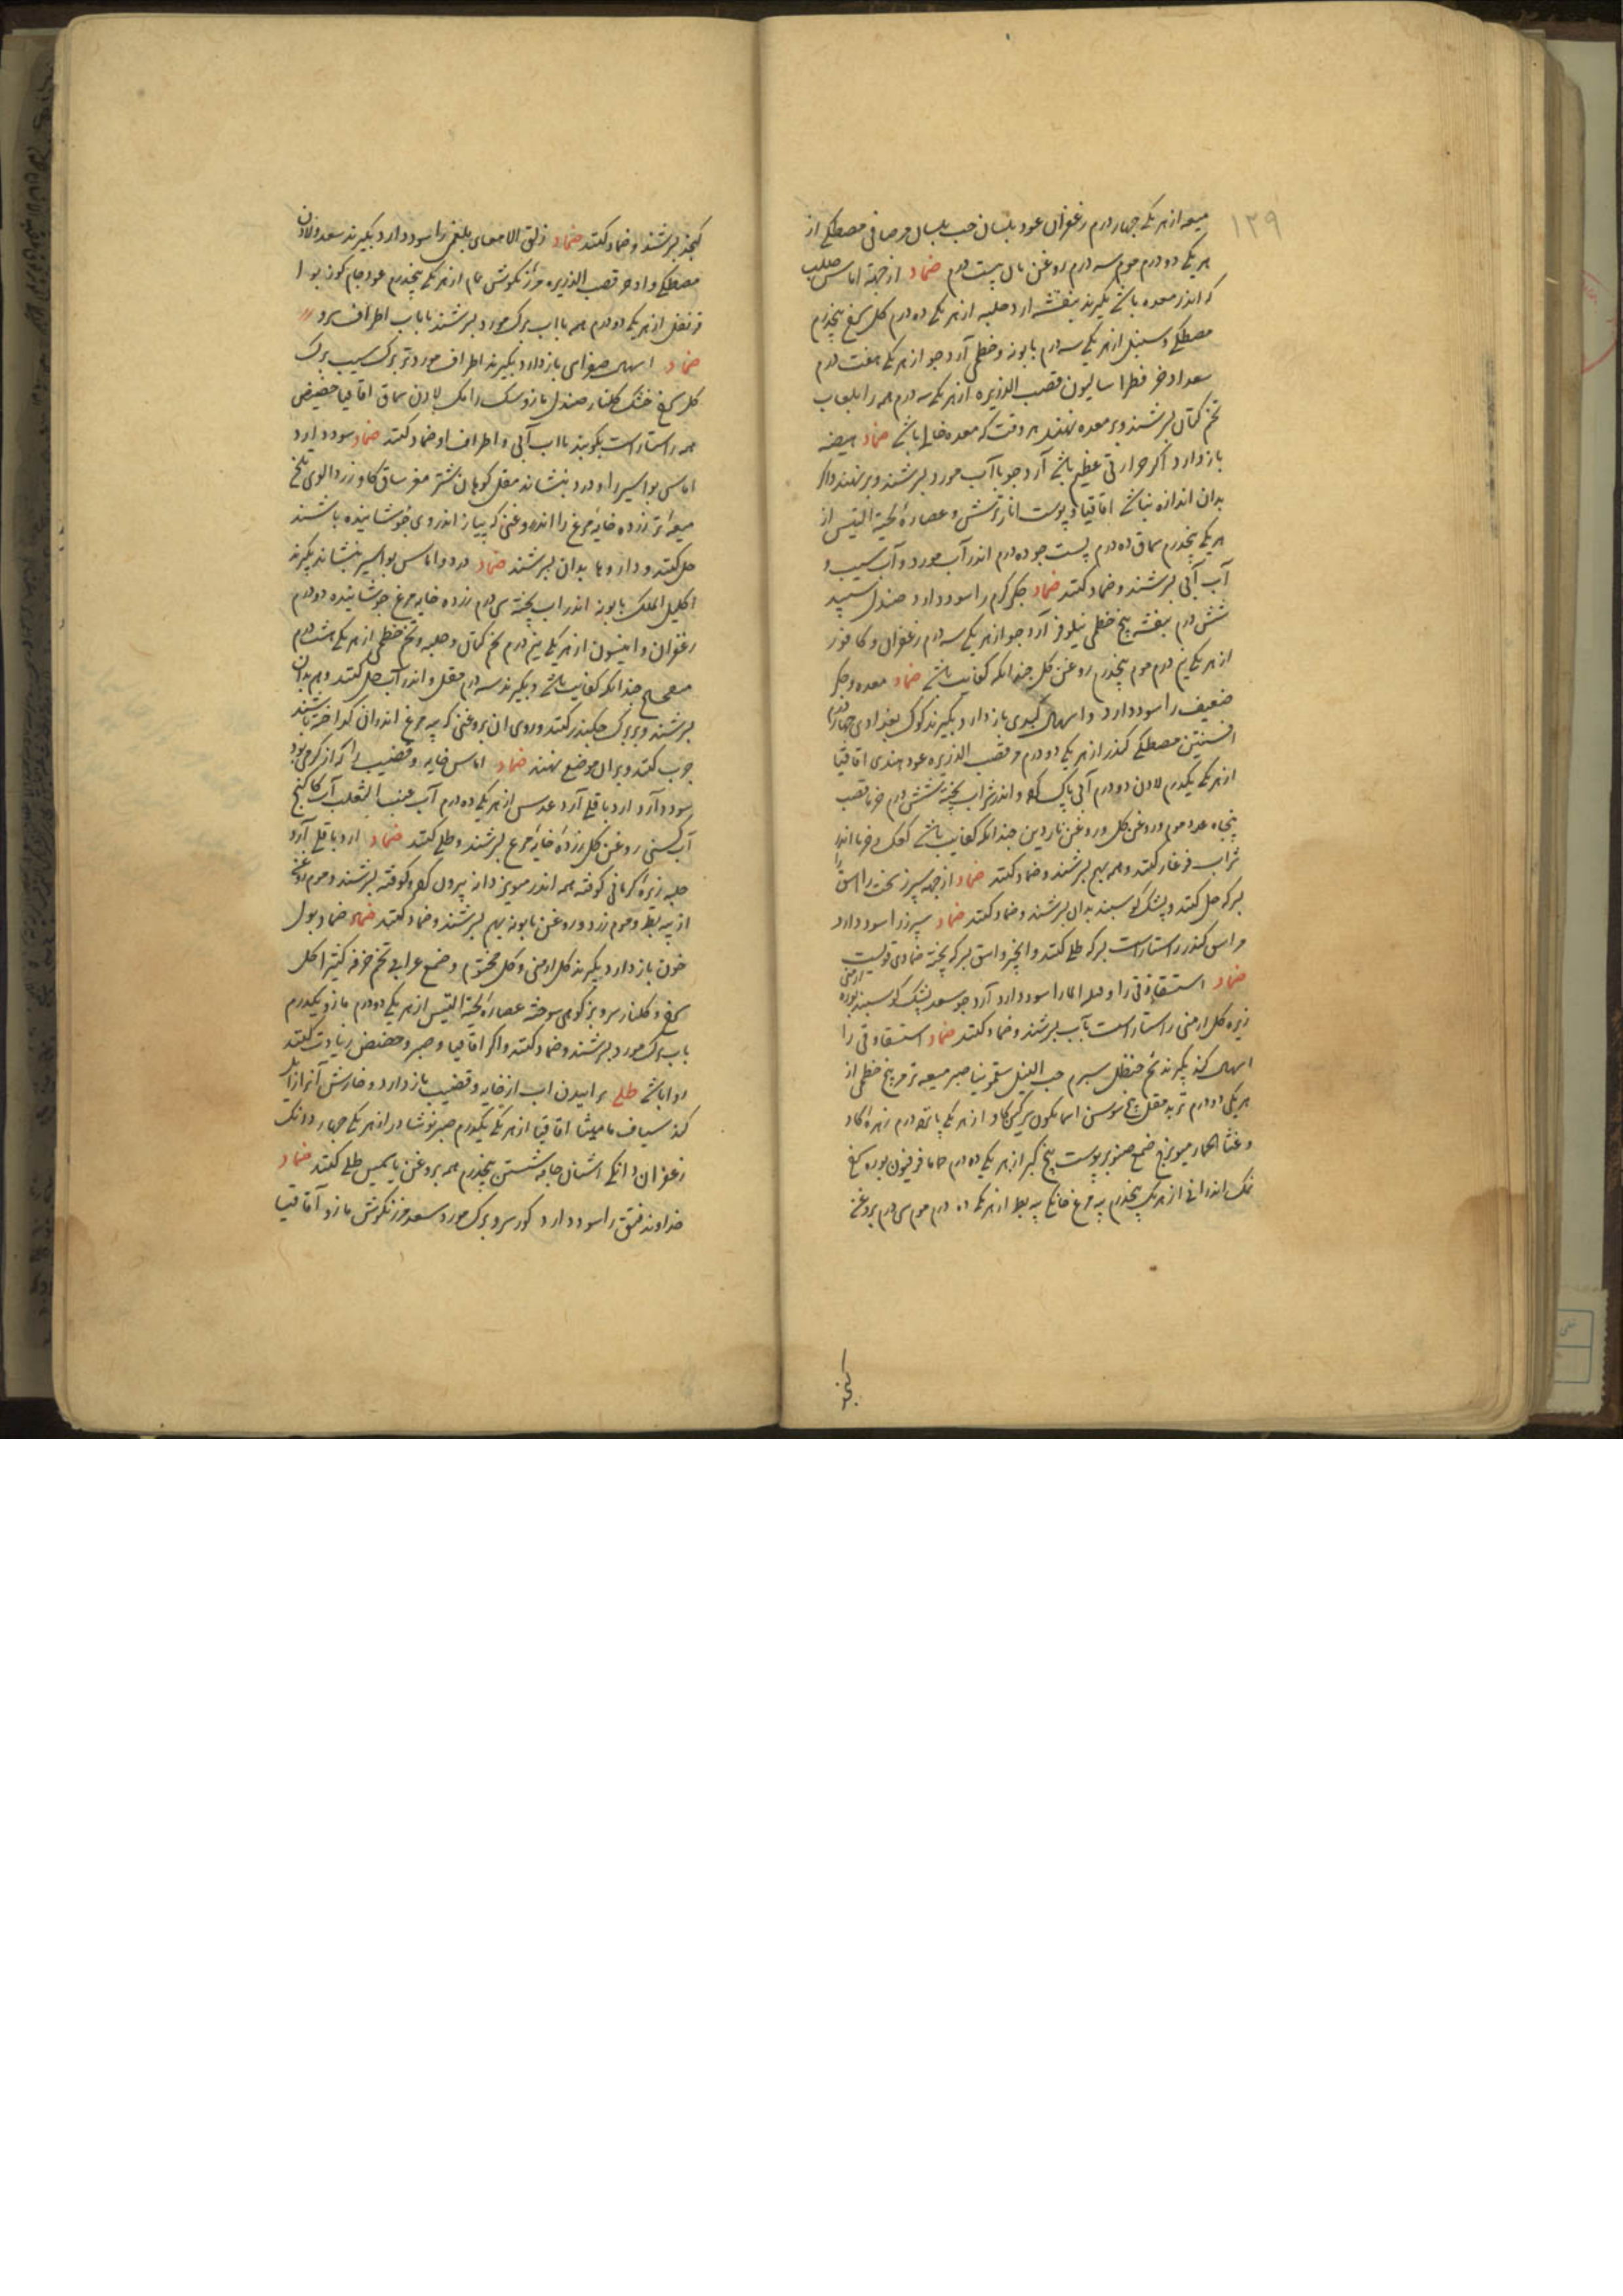 ۱۳۹
میعه از هر یکی چهار درم زعفران عود بلسان حب بلسان مر صافی مصطکی از
هر یکی دو درم موم سه درم روغن بان بیست درم ضماد از جهة اماس صلب
که اندر معده باشد بگیرند بنفشه ارد حلبه از هر یکی ده درم کل سرخ پنجدرم
مصطکی و سنبل از هر یکی سه درم بابونه و خطمی آرد جو از هر یکی هفت درم
سعد اذخر فطراسالیون قصب الذریره از هر یکی سه درم همه را بلعاب
تخم کتان بسرشند و بر معده نهند هر وقت که معده خالی باشد ضماد هیضه
بازدارد اکر حرارتی عظیم باشد آرد جو با آب مورد بسرشند و بر نهند واکر
بدان اندازه نباشد اقاقیا و پوست انار ترش و عصارة لحیة التیس از
هر یکی پنجدرم سماق ده درم پست جو ده درم اندر آب مورد و آب سیب و
آب آبی بسرشند و ضماد کنند ضماد جکر کرم را سود دارد صندل سپید
شش درم بنفشه بیخ خطمی نیلوفر آرد جو از هر یکی سه درم زعفران و کافور
از هر یکی نیم درم موم پنجدرم روغن کل چندانکه کفایت باشد ضماد معده و جکر
ضعیف را سود دارد و اسهال کبدی بازدارد بگیرند کوک بغدادی چهار درم
افسنتین مصطکی کندر از هر یکی دو درم مر قصب الذریره عود هندی اقاقیا
از هر یکی یکدرم لادن دو درم آبی پاک کرده و اندر شراب پخته شش درم خرما قصب
پنجاه عدد موم و روغن کل و روغن ناردین چندانکه کفایت باشد کعک و خرما اندر
شراب فرغار کنند و همه بهم بسرشند و ضماد کنند ضماد از جهة سپرز سخت را اشق را
بسرکه حل کنند و پشک کوسبند بدان بسرشند و ضماد کنند ضماد سپرز را سود دارد
مر اشق کندر راستاراست بسرکه طلی کنند و انجیر و اشق بسرکه پخته ضمادی قویست
ضماد استسقاء زقی را و همه اماسها را سود دارد آرد جو سعد پشک کوسبند بوره ارمنی
زیره کل ارمنی راستاراست بآب بسرشند و ضماد کنند ضماد استسقاء زقی را
اسهال کند بگیرند شحم حنظل شبرم حب النیل سقمونیا صبر میعه تر مر بیخ خطمی از
هر یکی دو درم تربد مقل بیخ سوسن اسمانکون سرکین کاو از هر یکی پانزده درم زهره کاو
و قثاء الحمار میویزج صمغ صنوبر پوست بیخ کبر از هر یکی ده درم حاما فرفیون بوره سرخ
نمک اندرانی از هر یک پنجدرم پیه مرغ خانکی پیه بط از هر یکی ده درم موم سی درم بروغن
کنجد
کنجد بسرشند و ضماد کنند ضماد زلق الامعای بلغمی را سود دارد بگیرند سعد و لادن
مصطکی و اذخر قصب الذریره مرزنکوش نمام از هر یکی پنجدرم عود خام کوز بوا
قرنفل از هر یکی دو درم همه با اب برک مورد بسرشند یا باب اطراف سرو
ضماد اسهال صفرای بازدارد بگیرند اطراف مورد تر برک سیب برک
کل سرخ خشک کلنار صندل مازو سک رامک لادن سماق اقاقیا حضیض
همه راستاراست بکوبند با اب آبی و اطراف او ضماد کنند ضماد سود دارد
اماس بواسیر را و درد بنشاند مقل کوهان شتر مغز ساق کاو زرد الوی تلخ
میعهٔ تر زرده خایهٔ مرغ را اندر روغنی که پیاز اندروی جوشانیده باشند
حل کنند و داروها بدان بسرشند ضماد درد و اماس بواسیر بنشاند بگیرند
اکلیل الملک بابونه اندر اب پخته سی درم زرده خایه مرغ جوشانیده ده درم
زعفران و انیسون از هر یکی نیم درم تخم کتان و حلبه و تخم خطمی از هر یکی هشت درم
چندانکه کفایت باشد و بگیرند سه درم مقل و اندر آب حل کنند و همه بدان
بسرشند و بر برک چکندر کنند و روی ان بروغنی که پیه مرغ اندران کداخته باشند
چرب کنند و بران موضع نهند ضماد اماس خایه و قضیب را که از کرمی بود
سود دارد ارد باقلی آرد عدس از هر یکی ده درم آب عنب الثعلب آب کاکنج
آب کسنی روغن کل زردهٔ خایهٔ مرغ بسرشند و طلی کنند ضماد ارد باقلی آرد
حلبه زیرهٔ کرمانی کوفته همه اندر میویز دانه بیرون کرده و کوفته بسرشند و موم روغنی
از پیه بط و موم زرد و روغن بابونه بهم بسرشند و ضماد کنند ضماد ضماد بول
خون بازدارد بگیرند کل ارمنی و کل مختوم و صمغ عرابی تخم خرفه کثیرا کل
سرخ و کلنار سرو بز کوهی سوخته عصارهٔ لحیة التیس از هر یکی دو درم مازو یکدرم
باب برک مورد بسرشند و ضماد کنند و اکر اقاقیا و صبر و حضض زیادت کنند
روا باشد طلی برامدن اب از خایه و قضیب بازدارد و خارش آنرا زایل
کند سیاف مامیثا اقاقیا از هر یکی یکدرم صبر نوشادر از هر یکی چهار دانک
زعفران دانکی اشنان جامه شستن پنجدرم همه بروغن یاسمین طلی کنند ضماد
خداوند فتق را سود دارد کوز سرو برک مورد سعد مرزنکوش مازو آقاقیا